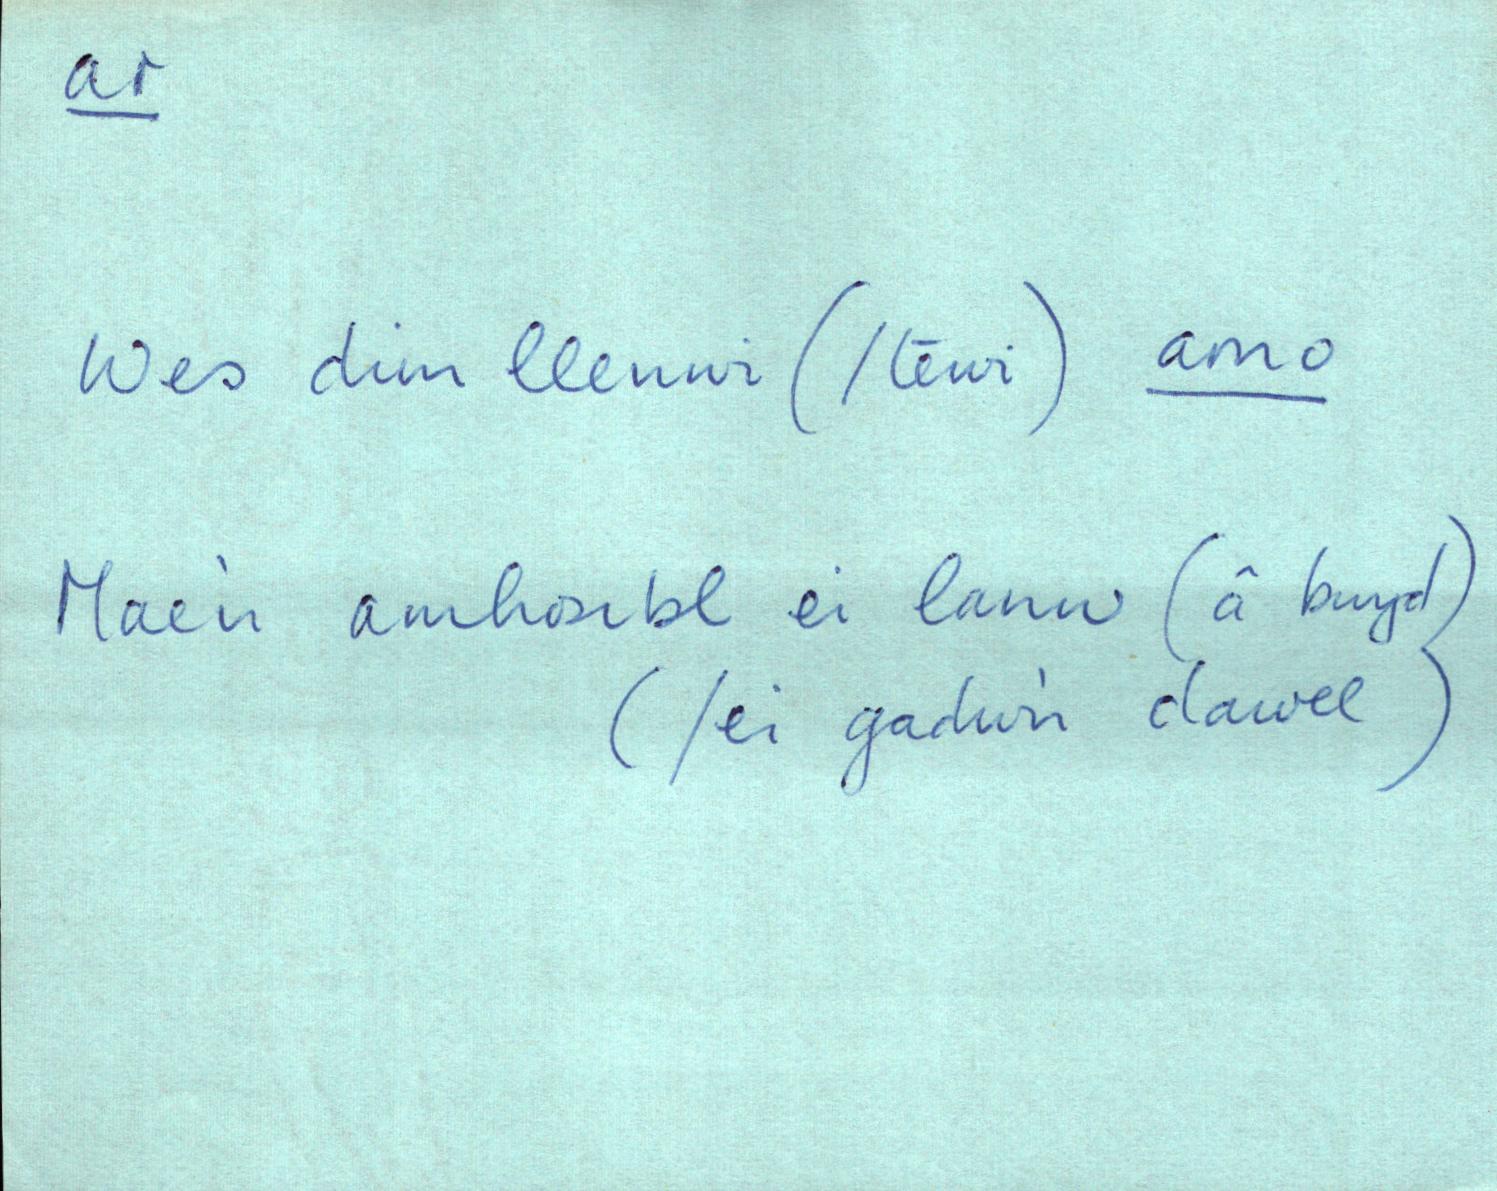 ar
Wes dim llenwi (/tēwi) arno
Mae'n amhosibl ei lanw (â bwyd)
(/ei gadw'n dawel)